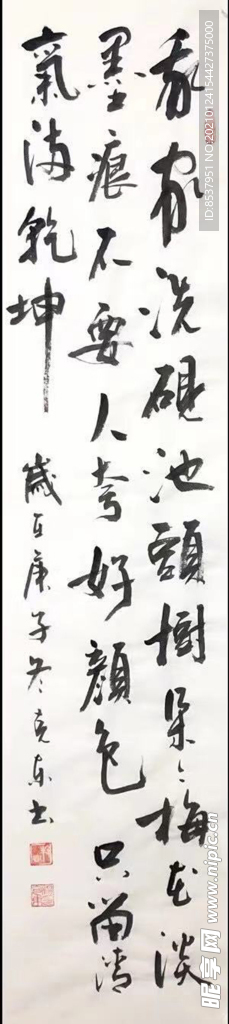 我家洗硯池頭樹朵〻梅花淡
墨痕不要人夸好顏色只留清
氣滿乾坤
歲在庚子冬克东书
ID:8537951 NO:20210124154427375000
昵享网 www.nipic.cn